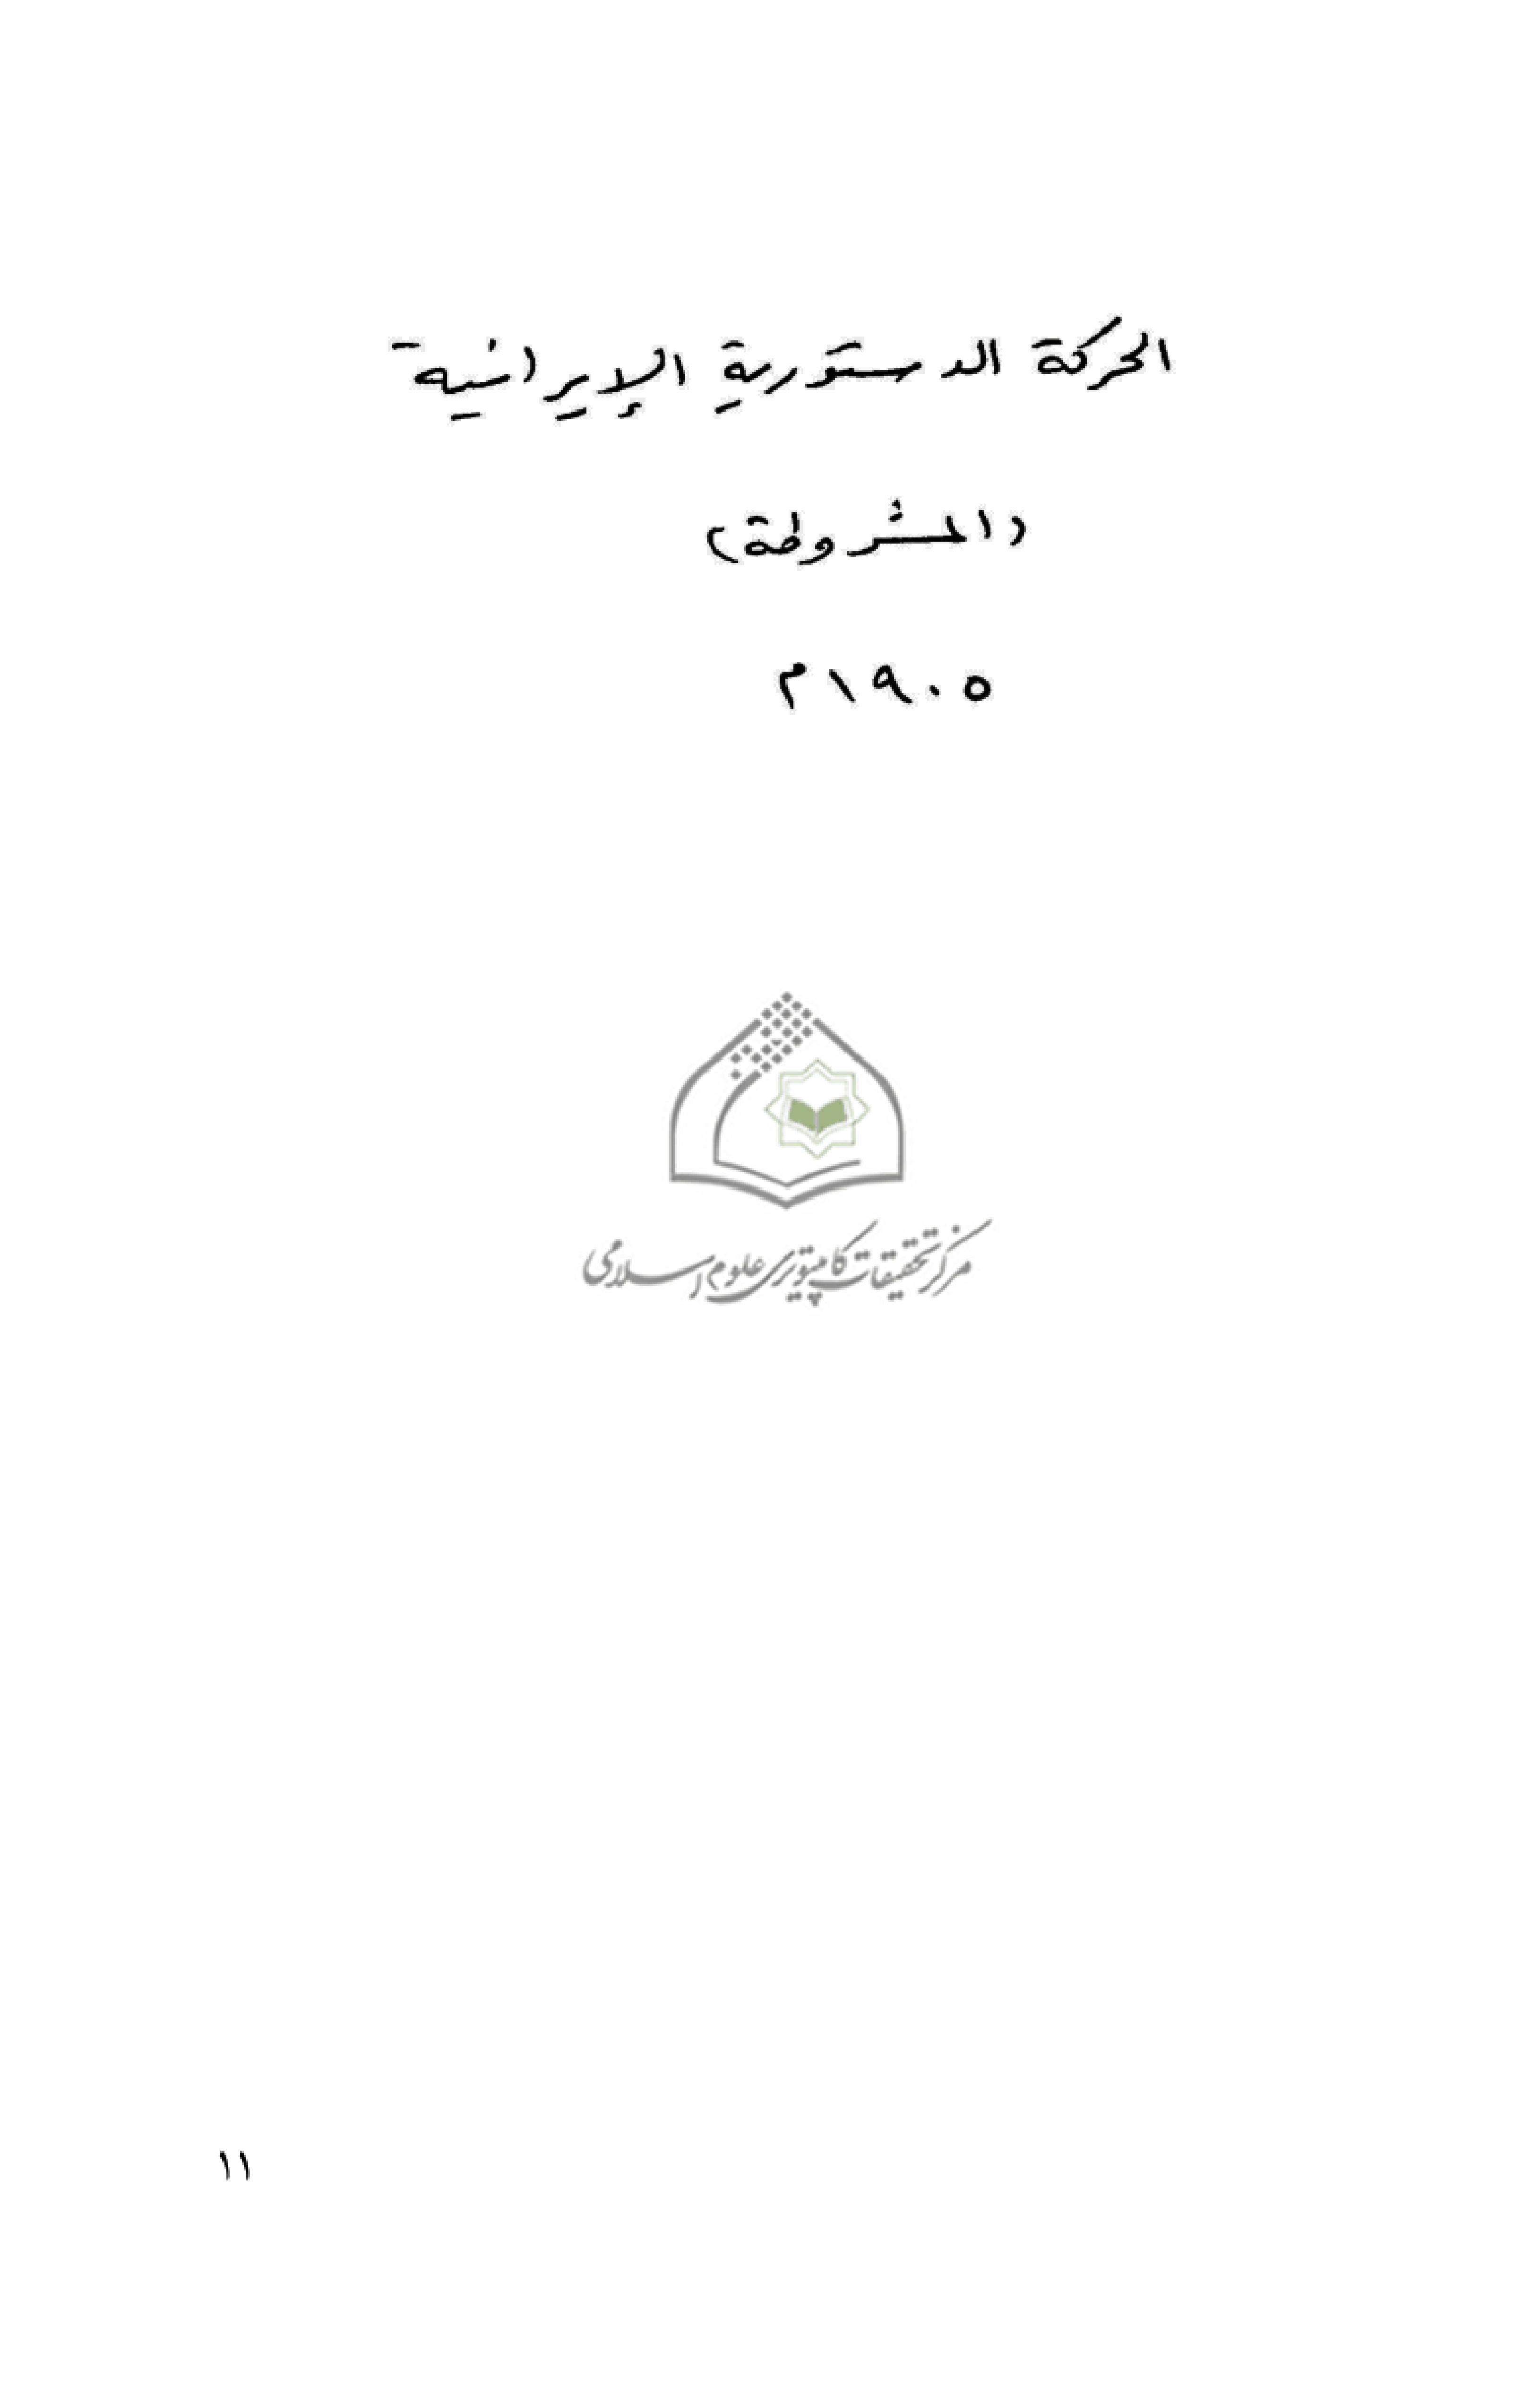 الحركة الدستورية الإيرانية
(المشروطة)
١٩٠٥م
مركز تحقيقات كامپيوتری علوم اسلامی
١١